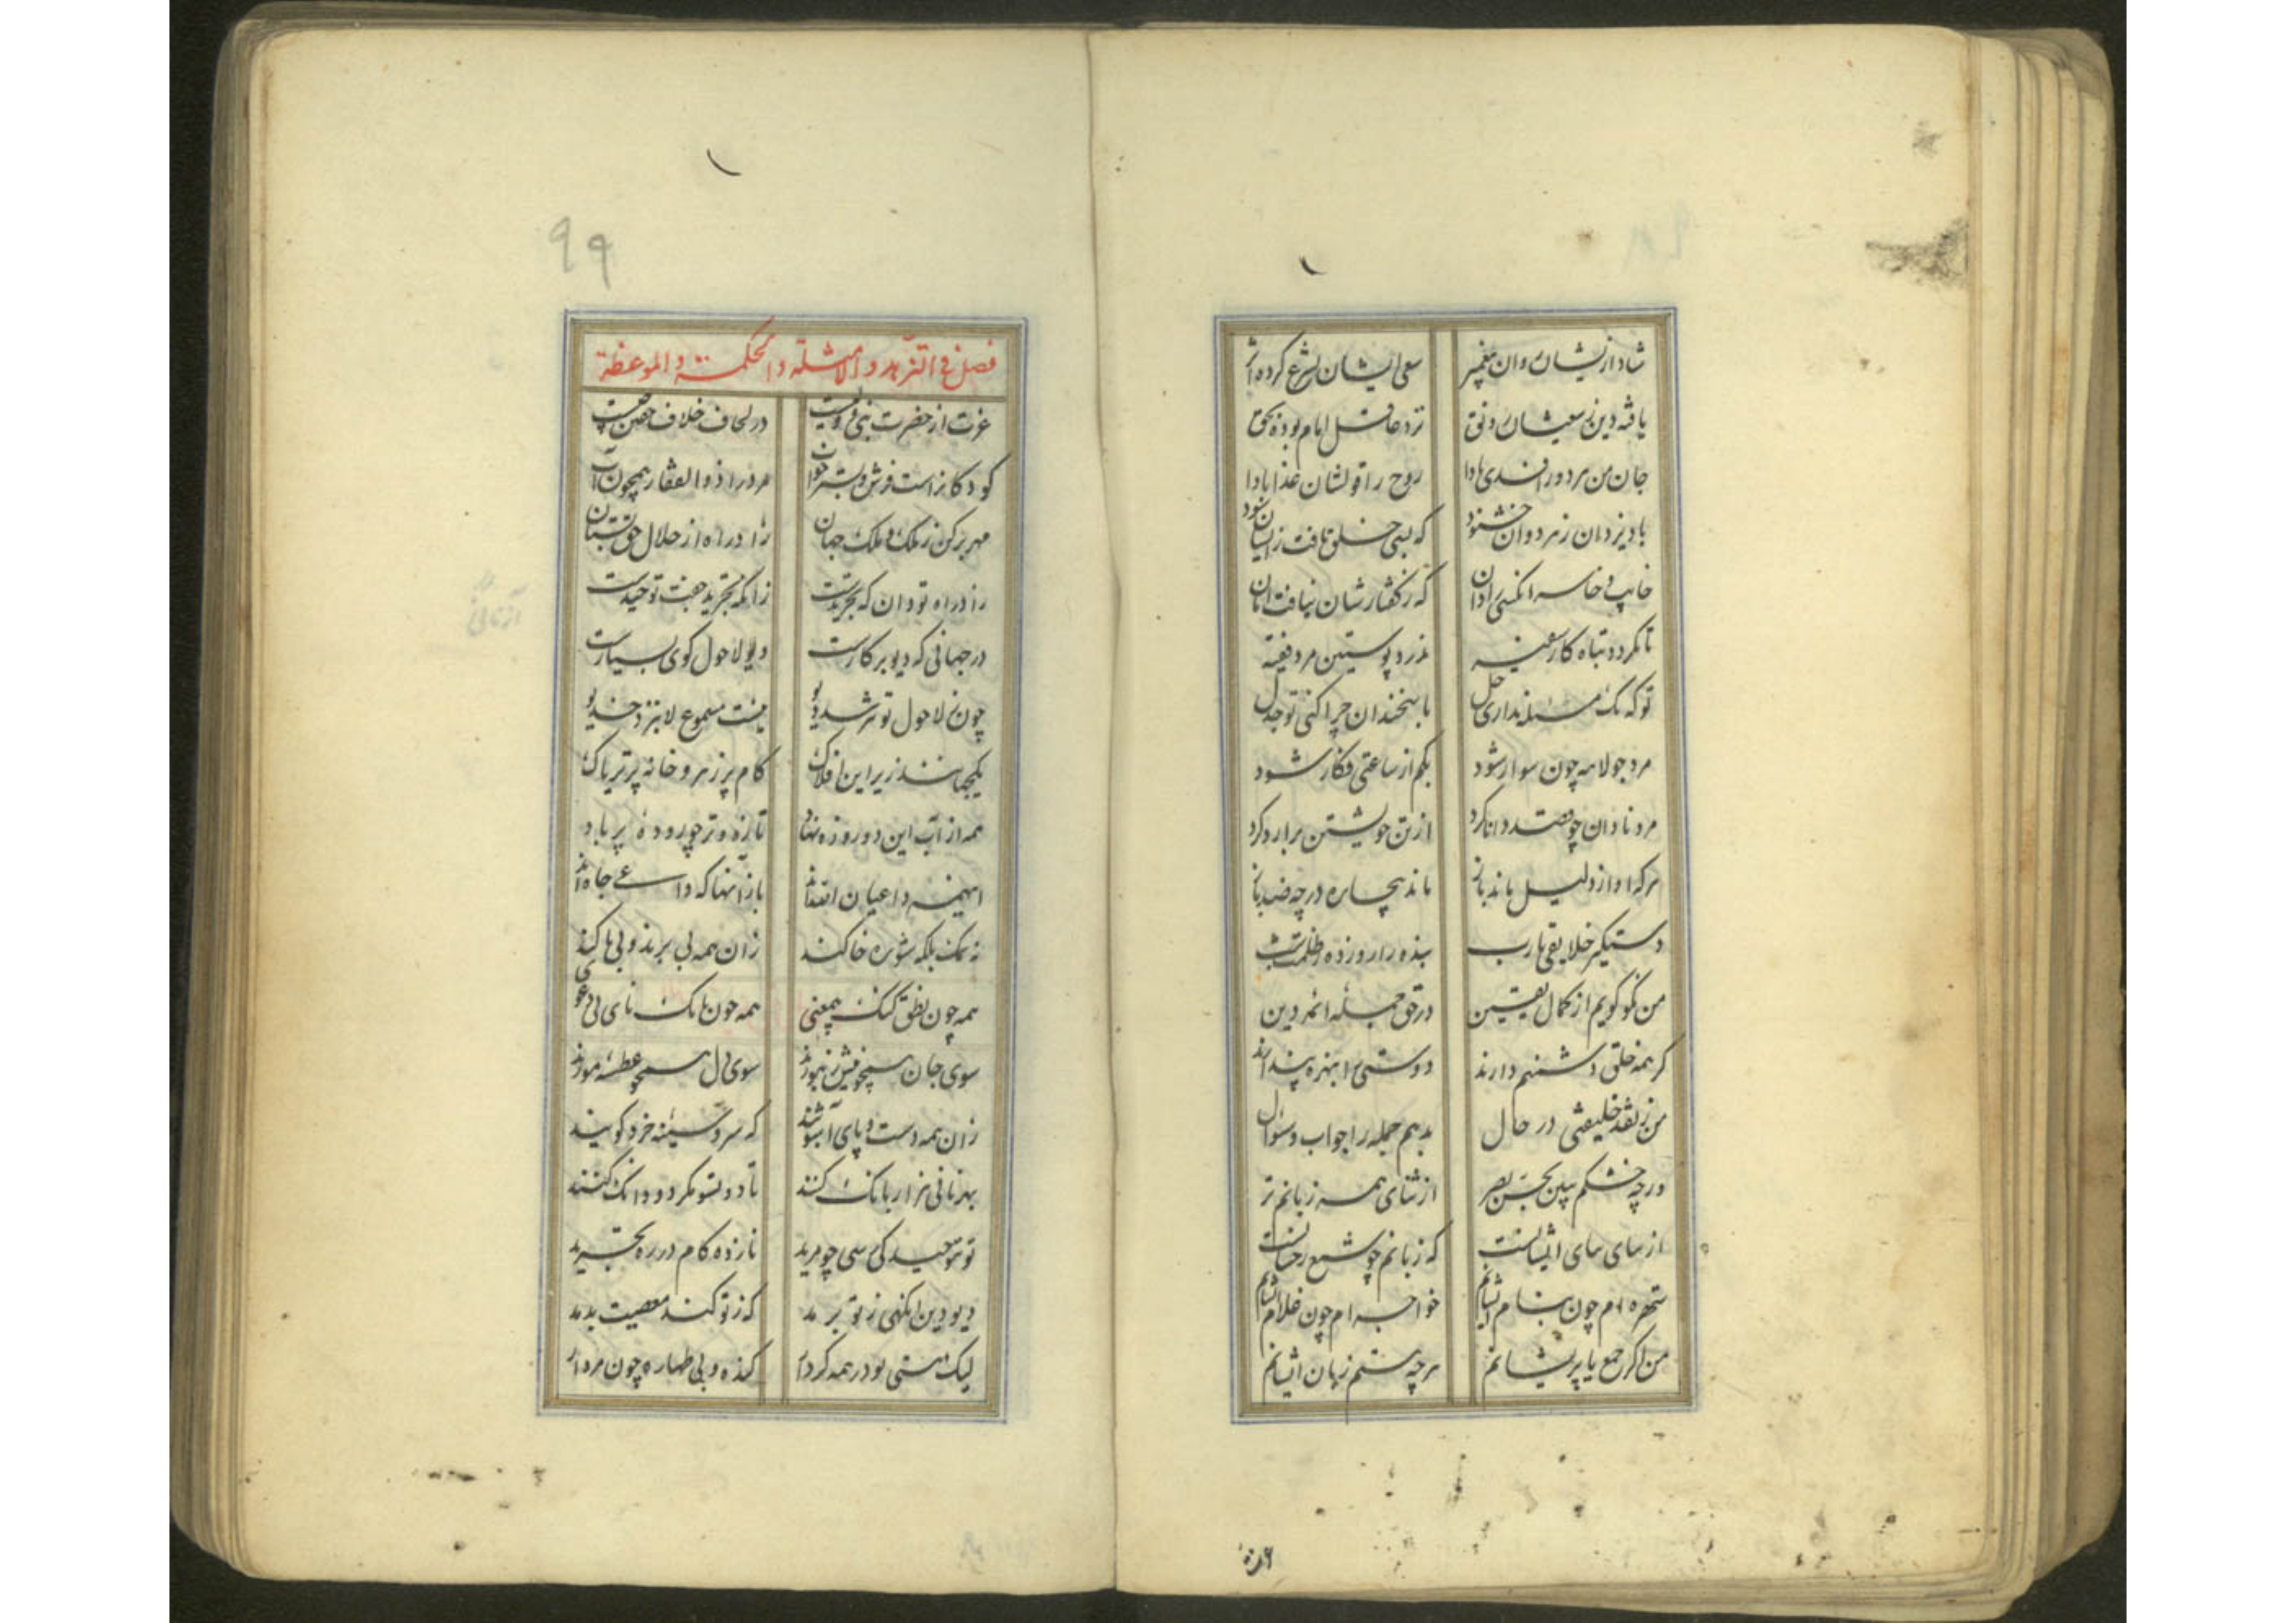 شاد ازیشان روان پیغمبر سعی ایشان بشرع کرده اثر
یافته دین ز سعیشان رونق نزد عاقل امام بوده بحق
جان من مر دو را فدی بادا روح را قولشان غذا بادا
باد یزدان ز هر دوان خشنود که بسی خلق یافت زیشان سود
خایب و خاسر انکسی را دان که ز گفتارشان نیافت امان
تا نگردد تباه کار سفیه ندرد پوستین مرد فقیه
تو که یک مسئله نداری حل با سخندان چرا کنی تو جدل
مرد جولاهه چون سوار شود بکم از ساعتی فکار شود
مرد نادان چو قصد دانا کرد از تن خویشتن برارد کرد
هر که او از دلیل ماند باز ماند بیچاره در چه
دستگیر خلایقی یا رب بنده را روز ده ز ظلمت شب
من نکو گویم از کمال یقین در حق جمله ائمه دین
گر همه خلق دشمنم دارند دوستی را بهزه پندارند
من ز نقد خلیفتی در حال بدهم جمله را جواب و سئوال
ور چه خشکم ببین بحس بصر از ثنای همه زبانم تر
از برای برای ایشانست که زبانم چو شمع رخشانست
شهره ام چون بنام ایشانم خواجه ام چون غلام ایشانم
من اگر جمع یا پریشانم هر چه هستم زبان ایشانم
۹۹
فصل فی التزهد والامثلة والحکمة والموعظة
عزت از حضرت نبی و ولیست در لحاف خلاف
کودکانراست فرش و بستر خواب مرد را ذوالفقار همچون آب
مهر برکن ز ملک و ملک جهان زاد راه از حلال حق بستان
زاد راه تو دان که تجریدست زانکه تجرید جفت توحیدست
در جهانی که دیو بر کارست دیو لاحول گوی بسیارست
چون ز لاحول تو نترسد دیو نیست مسموع لابه نزد خدیو
یکجهانند زیر این افلاک کام پر زهر و خانه پر تریاک
همه از آب این دو روزه نهاد تازه و تر چو روده پر باد
اینهمه داعیان باز آنها که داعی جاه اند
نه نمک بلکه شوره خاکند زان همه بی برند و بی باکند
همه چون نطق گنگ بیمعنی همه چون بانک نای بی دعوی
سوی جان سوی دل همچو عطسه موزند
زان همه دست و پای آشوبند که سر و سینه خرد کوبند
بهر نانی هزار بانک کنند تا دو تسو مگر دو دانک کنند
تو بتوحید کی رسی چو مرید نازده کام در ره تجرید
دیو دین آنکهی ز تو برمد که ز تو کند معصیت بدمد
لیک هستی تو در همه کردار کنده و بی طهاره چون مردار